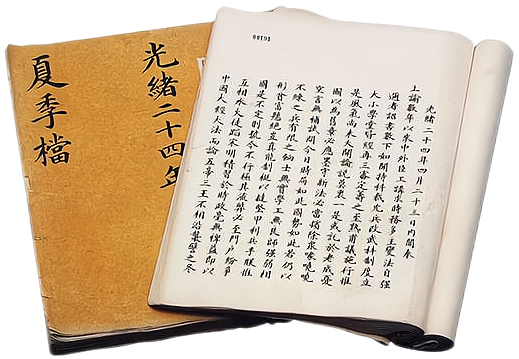 光緒二十四年
夏季檔
光緒二十四年四月二十三日內閣奉
上諭數年以來中外臣工講求時務多主變法自強
邇者詔書數下如開特科裁冗兵改武科制度立
大小學堂皆經再三審定籌之至熟甫議施行惟
是風氣尚未大開論說莫衷一是或託於老成憂
國以為舊章必應墨守新法必當擯除眾喙嘵嘵
空言無補試問今日時局如此國勢如此若仍以
不練之兵有限之餉士無實學工無良師強弱相
形貧富懸絕豈真能制梃以撻堅甲利兵乎朕惟
國是不定則號令不行極其流弊必至門戶紛爭
互相水火徒蹈宋明積習於時政毫無裨益即以
中國大經大法而論五帝三王不相沿襲譬之冬